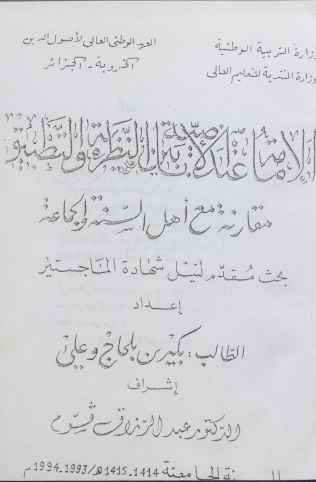 وزارة التربية الوطنية
وزارة المنتدبة للتعليم العالى
العهد الوطنى العالى لأصول الدين
الخروبة - الجزائر
الإمامة عند الإباضية بين النظرية والتطبيق
مقارنة مع أهل السنة والجماعة
بحث مقدم لنيل شهادة الماجستير
إعداد
الطالب : بكير بن بلحاج وعلي
إشراف
الدكتور عبد الرزاق قسوم
السنة الجامعية 1414-1415هـ/1993-1994م